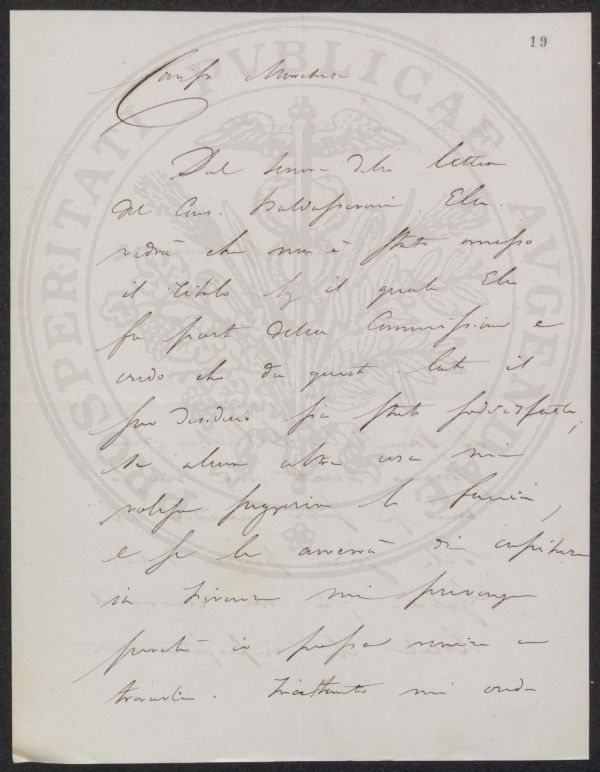 19
Cariss. Marchese
Dal tenore della lettera
del Cav. Baldasseroni Ella
vedrà che non è stato omesso
il titolo per il quale Ella
fa parte della Commissione e
credo che da questo lato il
suo desiderio sia stato sodisfatto,
se alcuna altra cosa mi
volesse suggerire lo faccia,
e se le avverrà di capitare
in Firenze mi prevenga
perché io possa venire a
trovarla. Frattanto mi creda
PROSPERITATI PVBLICAE AVGENDAE